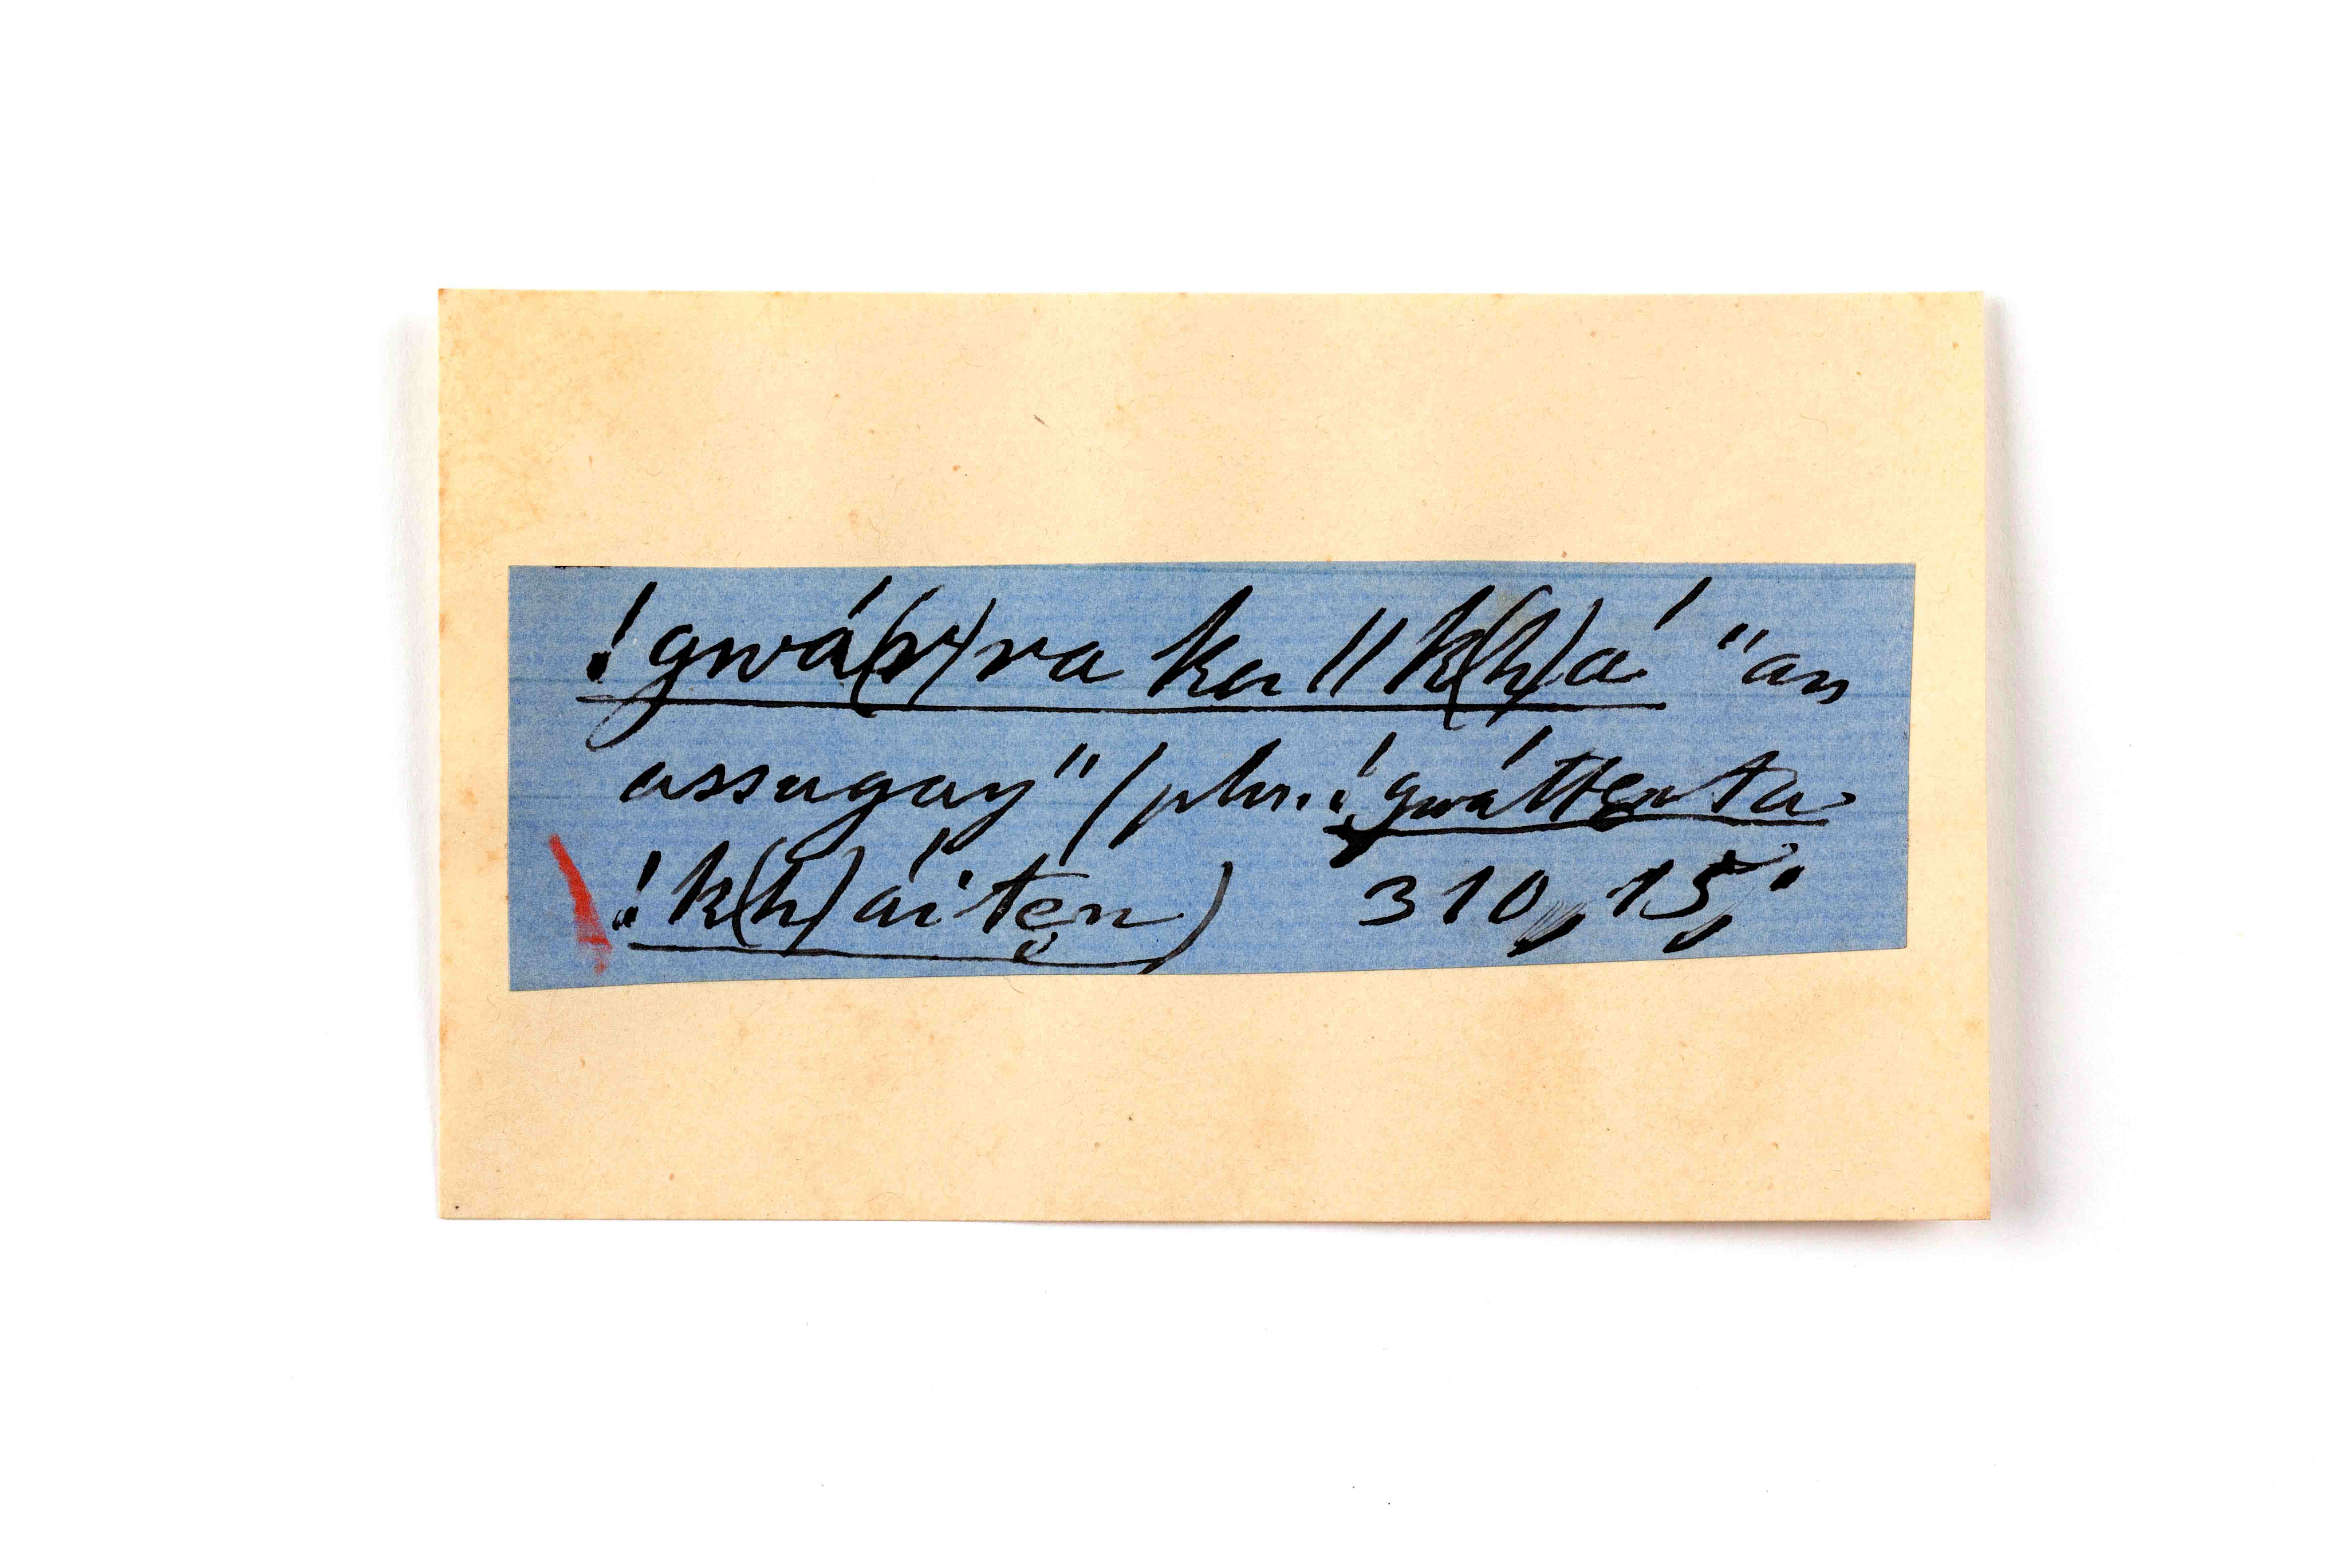 !gwá(ɤ)ra ka ǁk(h)á "an
assagay" (plur. !gwáttẹn ta
!k(h)áitẹn) 310, 15,'